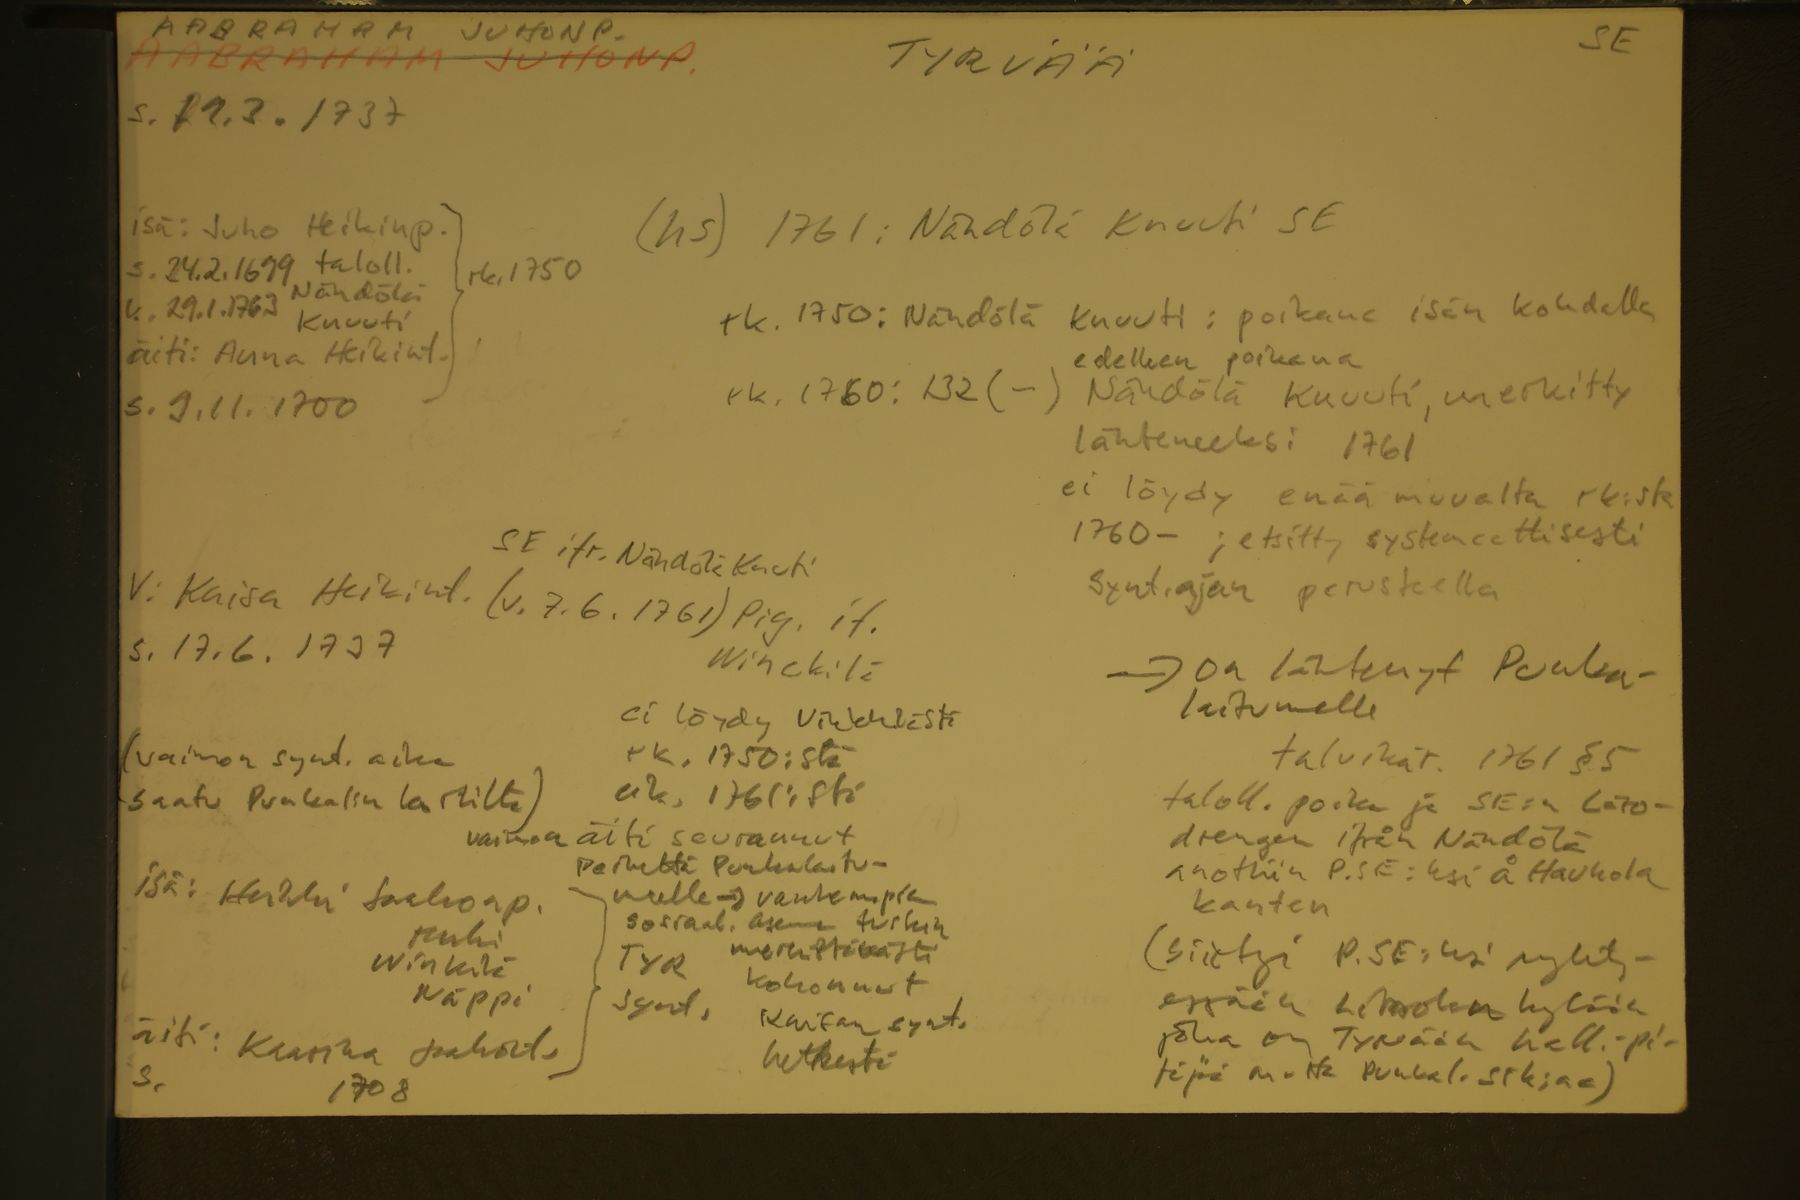 AABRAHAM JUHONP.
AABRAHAM JUHONP.
TYRVÄÄ
SE
s. 19.3. 1737
isä: Juho Heikinp.
s. 24.2.1699 taloll.
k. 29.1.1763 Nändölä
Knuuti
äiti: Anna Heikint.
s. 9.11. 1700
rk. 1750
(hs) 1761: Nändölä Knuuti SE
rk. 1750: Nändölä Knuuti: poikana isän kohdalla
edelleen poikana
rk. 1760: 132 (-) Nändölä Knuuti, merkitty
lähteneeksi 1761
ei löydy enää muualta rk:sta
1760- ; etsitty systemaattisesti
synt.ajan perusteella
→ on lähtenyt Punka-
laitumelle
talvikär. 1761 §5
taloll. poika ja SE:n
drengen ifrån Nändölä
anottiin P.SE:ksi å Haukola
kanten
(siirtyi P.SE:ksi ryhty-
essään kylään
joka on Tyrvään hall.-pi-
täjää mutta Punkal. srk:aa)
SE ifr. Nändölä Knuti
V: Kaisa Heikint. (v. 7.6. 1761) Pig. if.
s. 17.6. 1737
Winckilä
ei löydy Vinckilästä
rk. 1750:stä
eik. 1761:stä
(vaimon synt. aika
saatu Punkalin kortilta)
vaimon äiti seurannut
perhettä Punkalaitu-
melle → vanhempien
sosiaal. asema tuskin
merkittävästi
kohonnut
Kaisan synt.
hetkestä
isä: Heikki Jaakonp.
Winkilä
Näppi
TYR
synt.
äiti: Kaarina Jaakont.
s. 1708